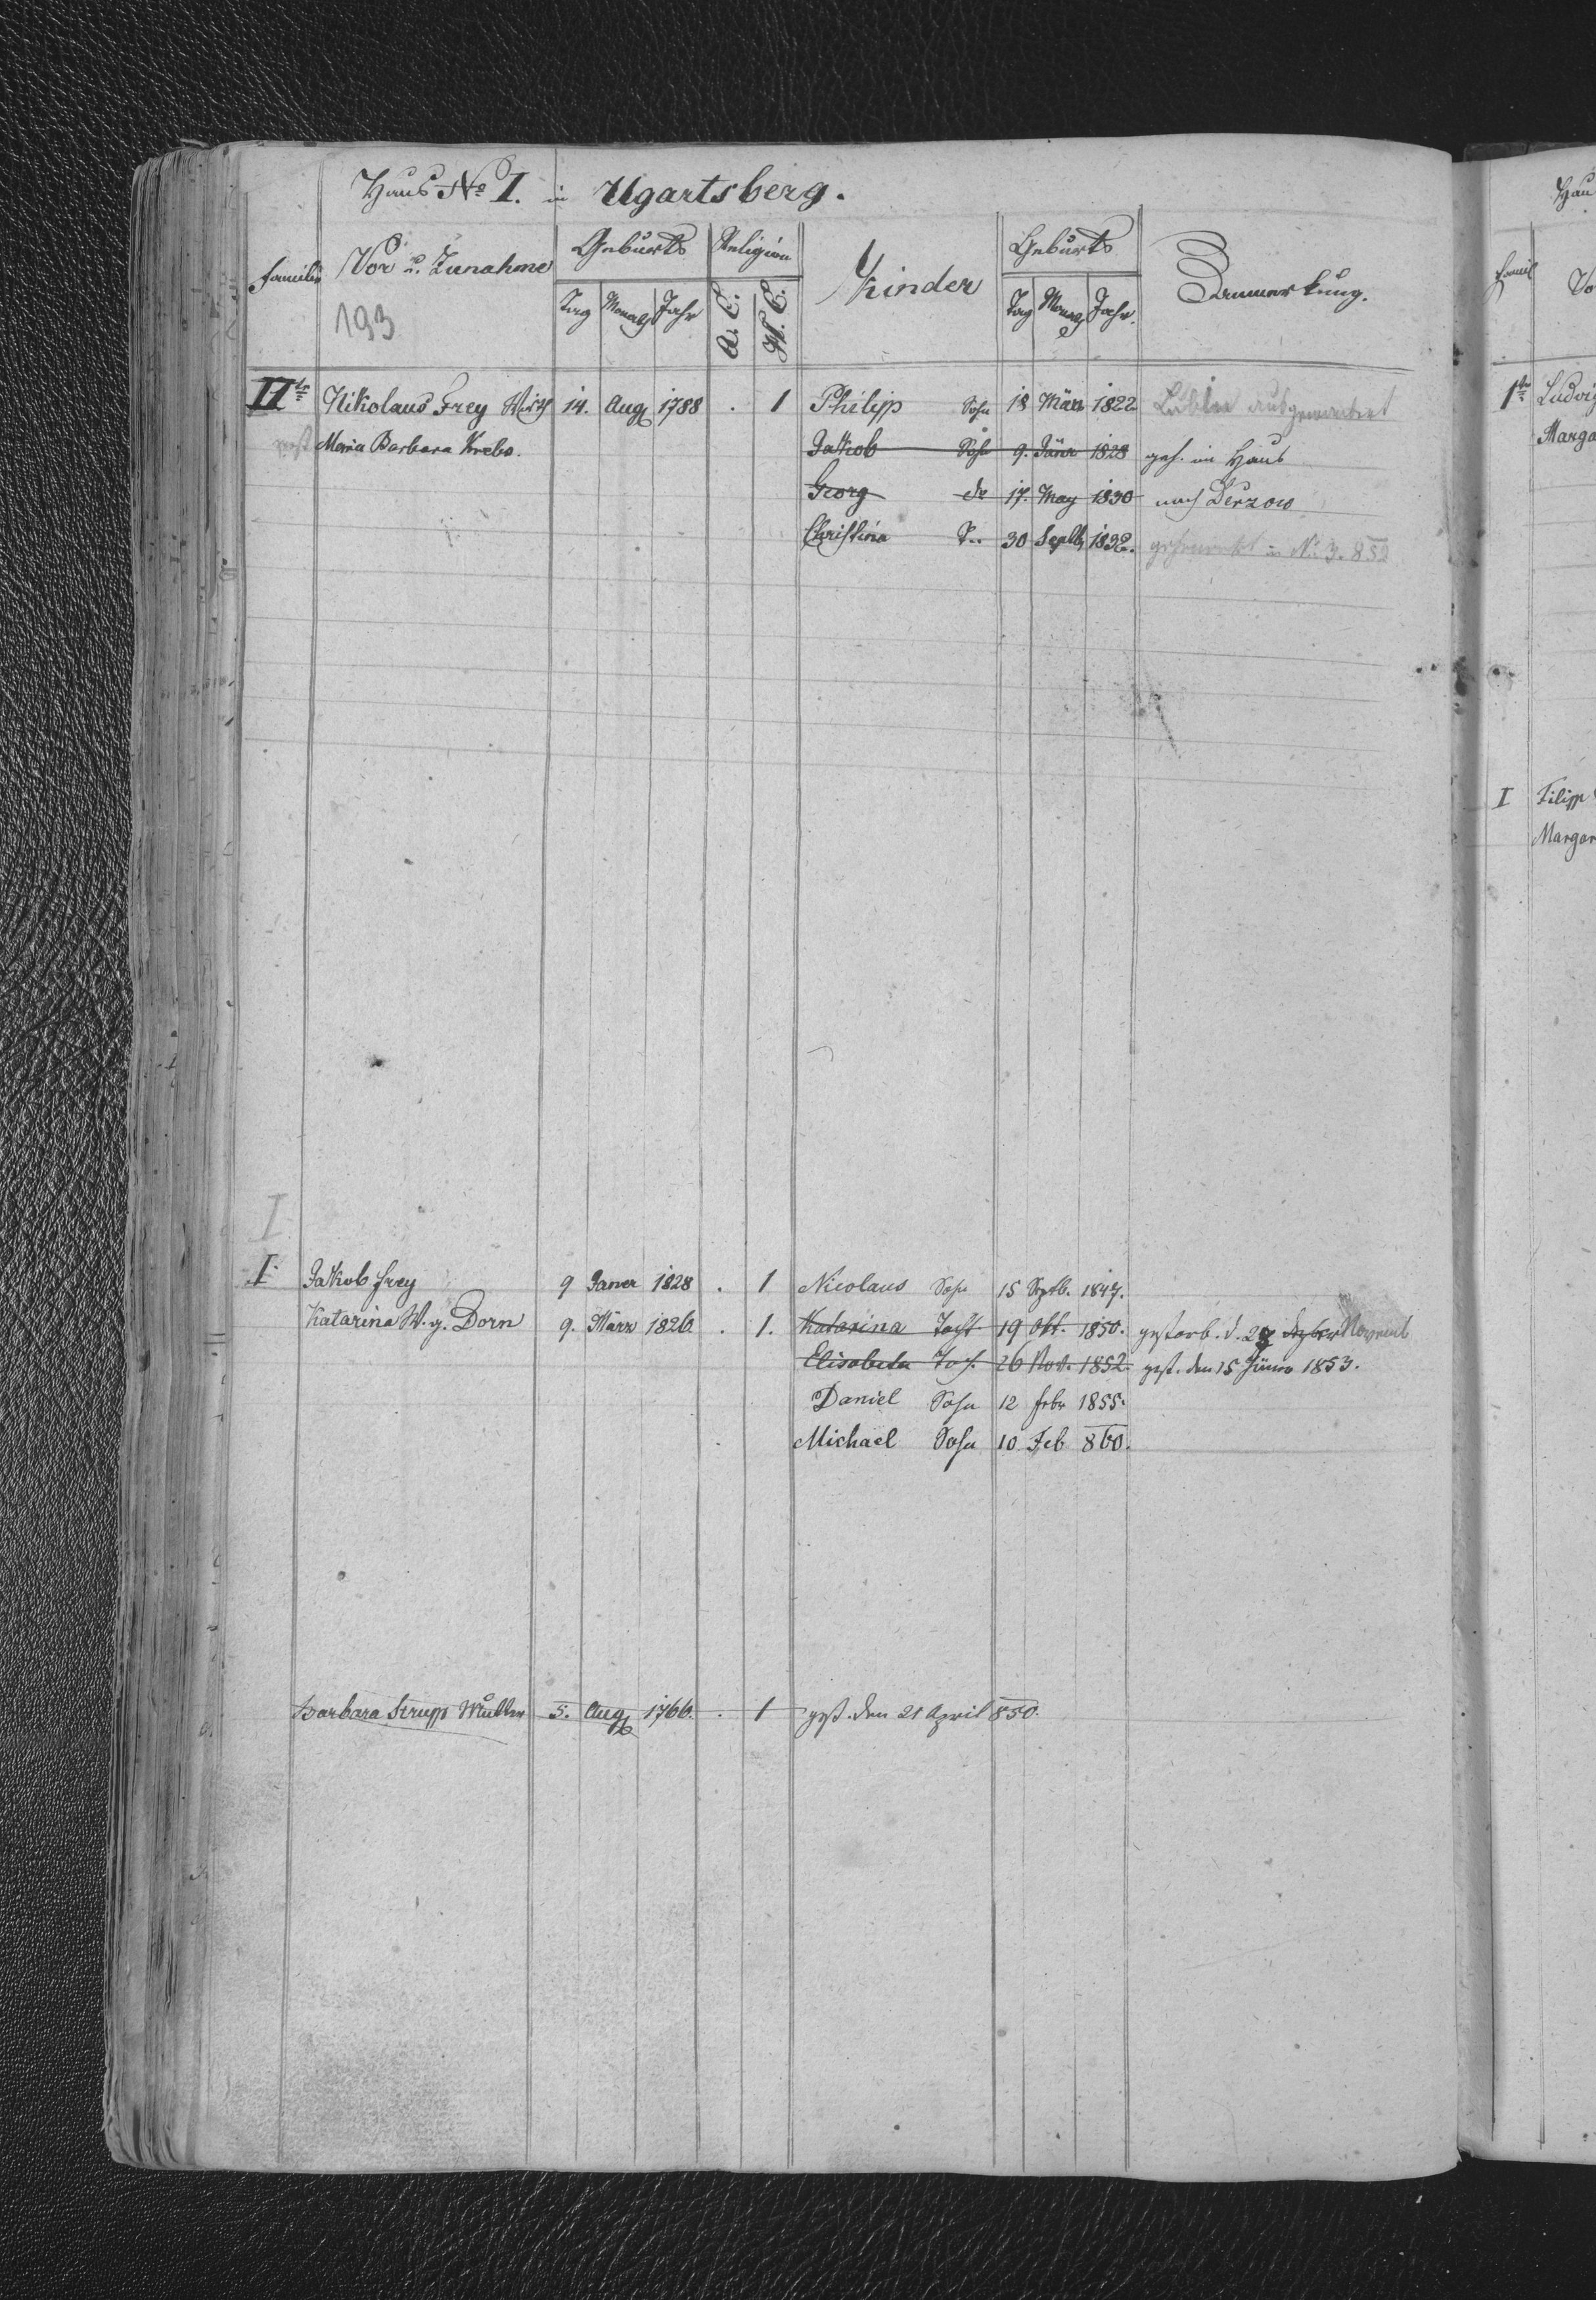 Haus No I. in Ugartsberg.
Familie Vor u. Zunahme Geburts Religion Kinder Geburts Anmerkung.
Tag Monath Jahr A. C. H. C. Tag Monath Jahr.
193
IIte Nikolaus Frey Wirth 14. Aug 1788 . 1 Philipp Sohn 18 März 1822 ausgewandert
Maria Barbara Krebs. Jakob Sohn 9. Jäner 1828 geh. im Haus
Georg do 17. May 1830 nach Derzow
Christina T.. 30 Septb 1832. geheurathet in No 3. 852
I
I Jakob Frey 9 Janer 1828 . 1 Nicolaus Sohn 15 Septb. 1847.
Katarina W. g. Dorn 9. März 1826 . 1. Katarina Tocht. 19 Okt. 1850. gestorb. d. 29 dezber Novemb
Elisabeta Toch. 26 Nov. 1852. gest. den 15 Jänner 1853.
Daniel Sohn 12 febr 1855.
Michael Sohn 10 Feb 860.
Barbara Strupp Mutter 5. Aug 1766. . 1 gest. den 21 April 850.
Hau
Famil Vo
1te Ludwig
Marga
I Filipp
Margar